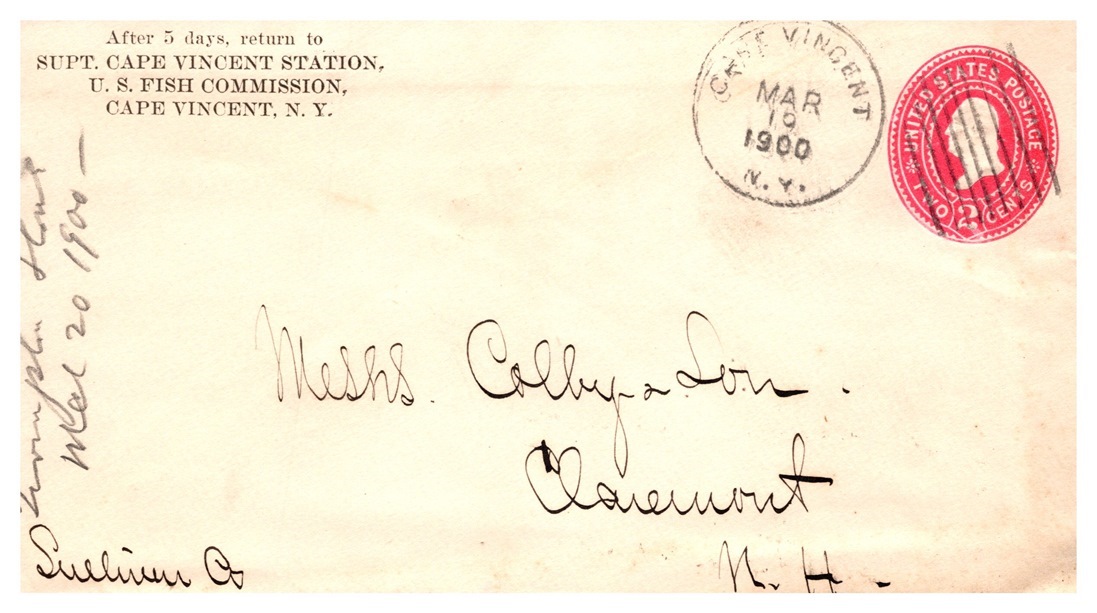 After 5 days, return to
SUPT. CAPE VINCENT STATION,
U. S. FISH COMMISSION,
CAPE VINCENT, N. Y.
CAPE VINCENT
MAR
19
1900
N. Y.
UNITED STATES POSTAGE
TWO 2 CENTS
Mess̓rs. Colby & Son.
Claremont
N. H.
Sullivan Co
20 1900 —